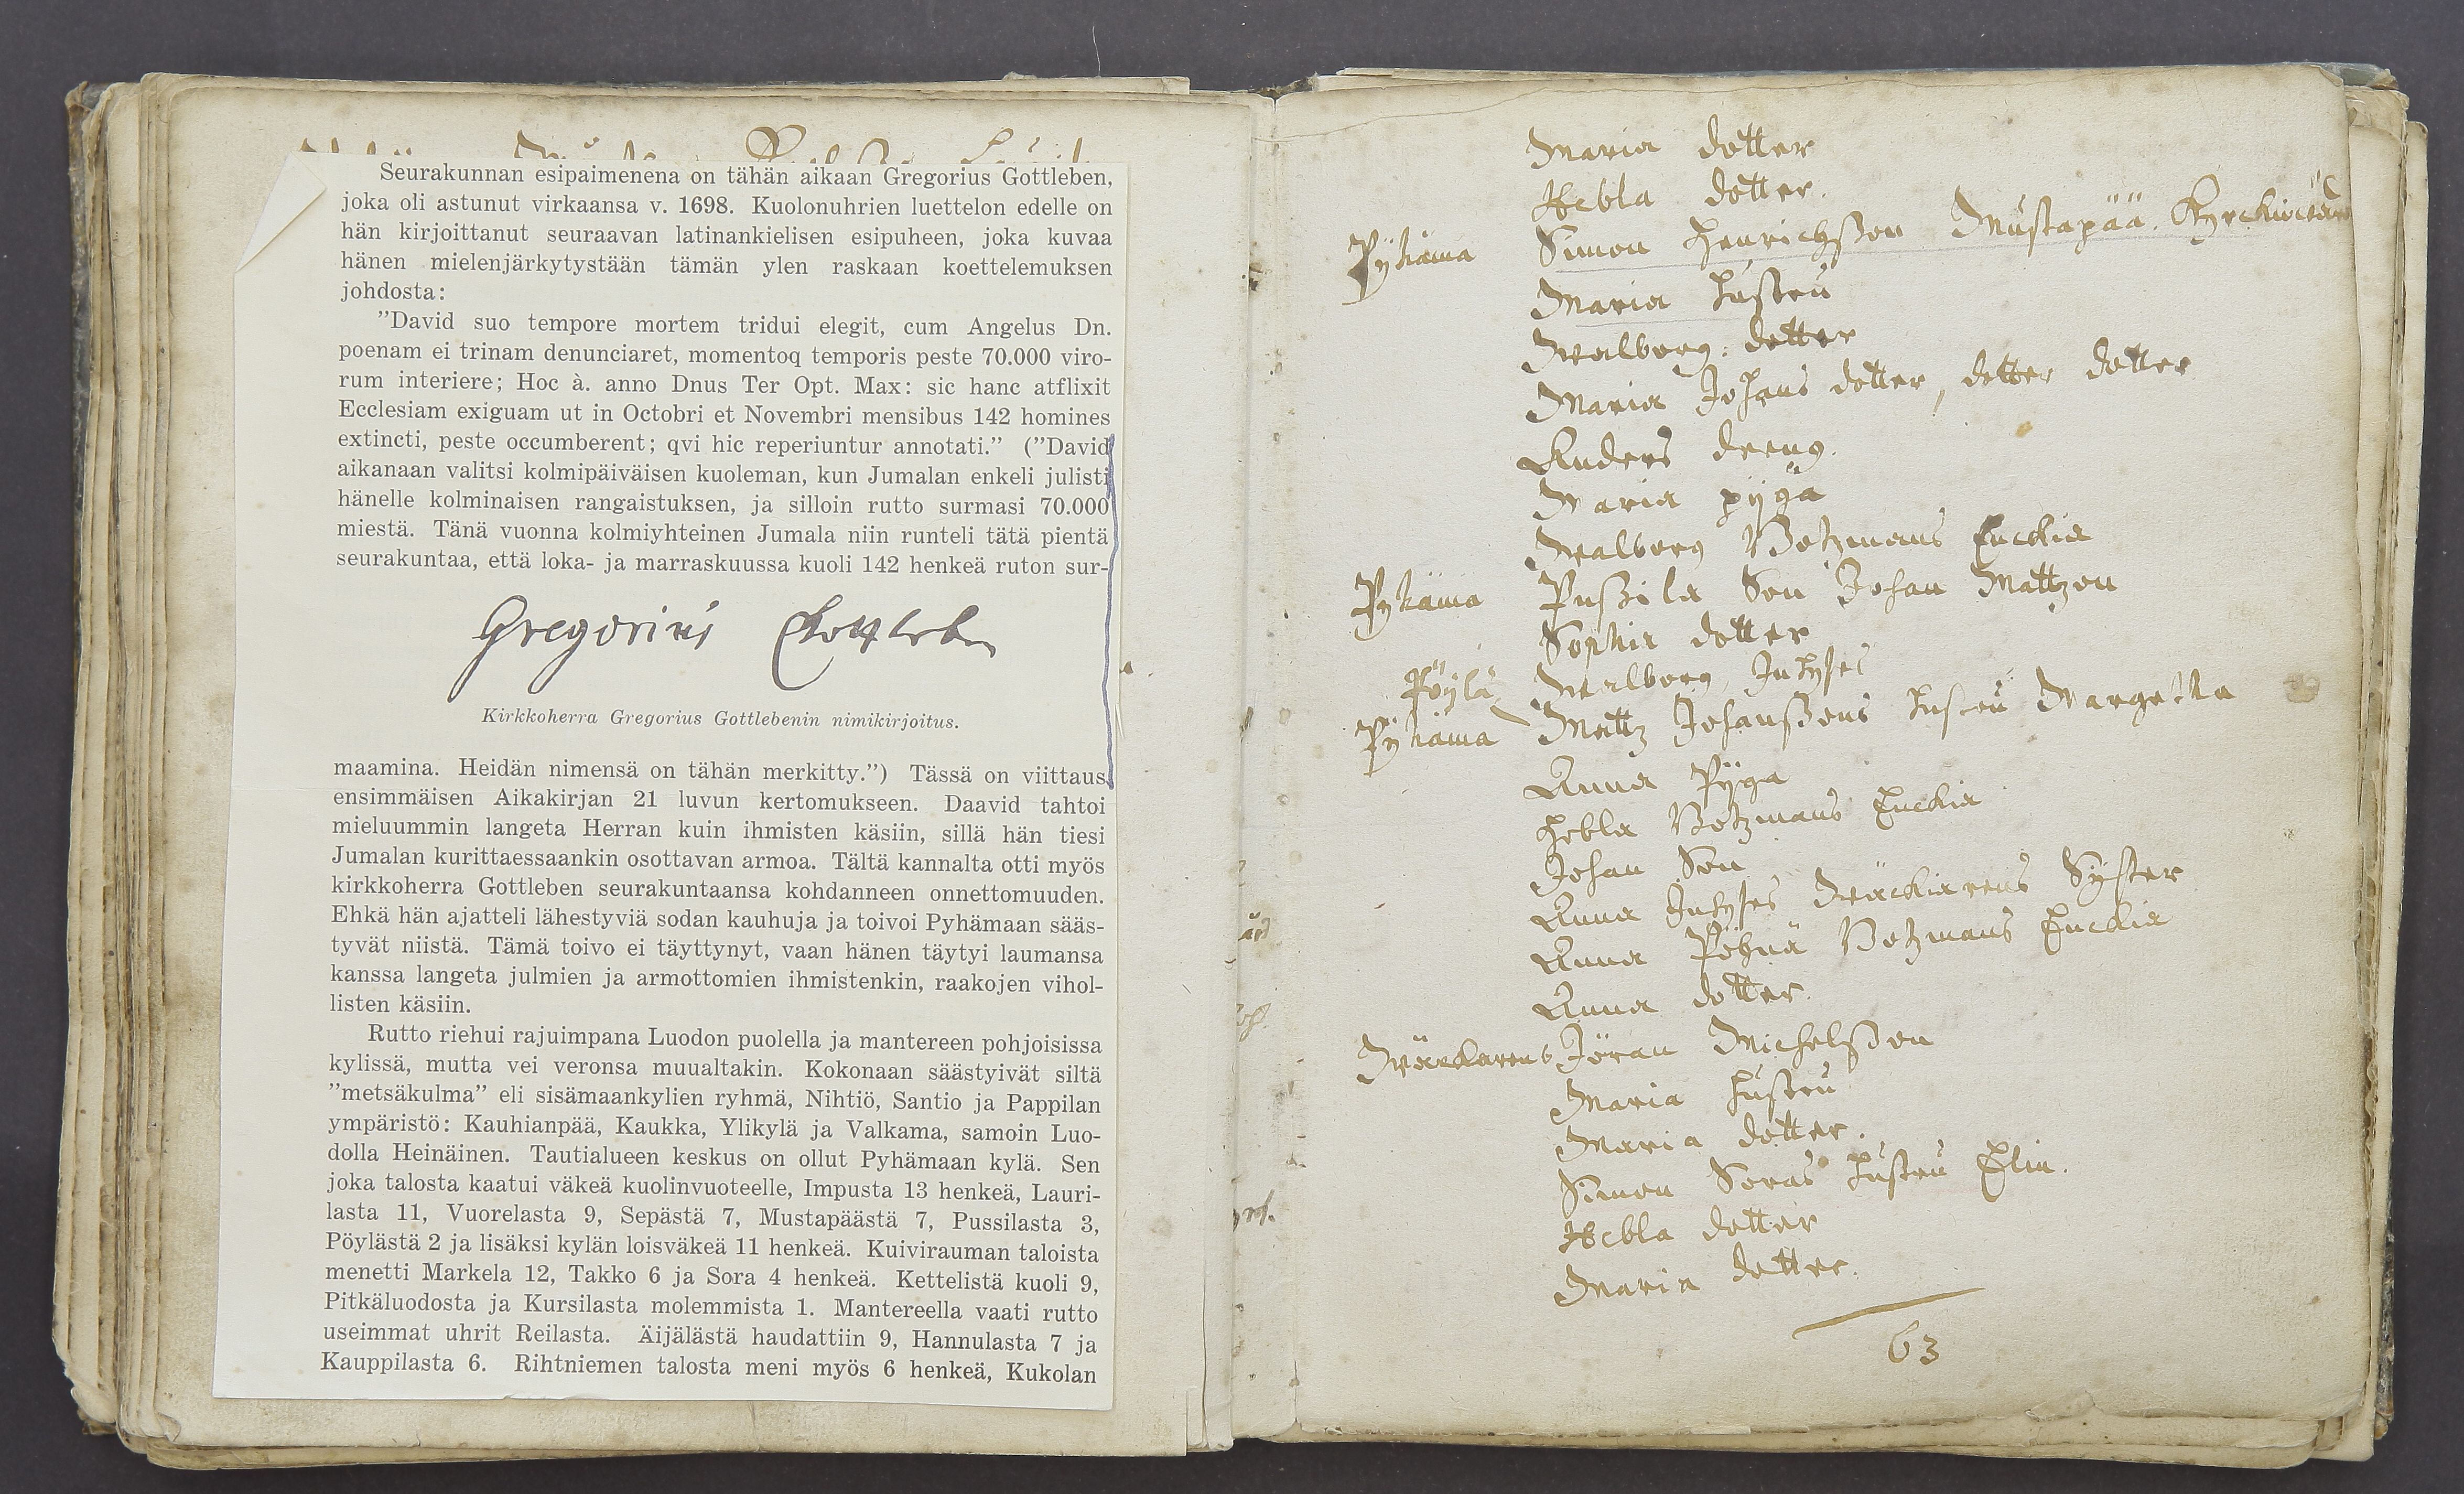 Seurakunnan esipaimenena on tähän aikaan Gregorius Gottleben,
joka oli astunut virkaansa v. 1698. Kuolonuhrien luettelon edelle on
hän kirjoittanut seuraavan latinankielisen esipuheen, joka kuvaa
hänen mielenjärkytystään tämän ylen raskaan koettelemuksen
johdosta:
"David suo tempore mortem tridui elegit, cum Angelus Dn.
poenam ei trinam denunciaret, momentoq temporis peste 70.000 viro-
rum interiere; Hoc à. anno Dnus Ter Opt. Max: sic hanc atflixit
Ecclesiam exiguam ut in Octobri et Novembri mensibus 142 homines
extincti, peste occumberent; qvi hic reperiuntur annotati." ("David
aikanaan valitsi kolmipäiväisen kuoleman, kun Jumalan enkeli julisti
hänelle kolminaisen rangaistuksen, ja silloin rutto surmasi 70.000
miestä. Tänä vuonna kolmiyhteinen Jumala niin runteli tätä pientä
seurakuntaa, että loka- ja marraskuussa kuoli 142 henkeä ruton sur-
Gregorius Gottleben
Kirkkoherra Gregorius Gottlebenin nimikirjoitus.
maamina. Heidän nimensä on tähän merkitty.") Tässä on viittaus
ensimmäisen Aikakirjan 21 luvun kertomukseen. Daavid tahtoi
mieluummin langeta Herran kuin ihmisten käsiin, sillä hän tiesi
Jumalan kurittaessaankin osottavan armoa. Tältä kannalta otti myös
kirkkoherra Gottleben seurakuntaansa kohdanneen onnettomuuden.
Ehkä hän ajatteli lähestyviä sodan kauhuja ja toivoi Pyhämaan sääs-
tyvät niistä. Tämä toivo ei täyttynyt, vaan hänen täytyi laumansa
kanssa langeta julmien ja armottomien ihmistenkin, raakojen vihol-
listen käsiin.
Rutto riehui rajuimpana Luodon puolella ja mantereen pohjoisissa
kylissä, mutta vei veronsa muualtakin. Kokonaan säästyivät siltä
"metsäkulma" eli sisämaankylien ryhmä, Nihtiö, Santio ja Pappilan
ympäristö: Kauhianpää, Kaukka, Ylikylä ja Valkama, samoin Luo-
dolla Heinäinen. Tautialueen keskus on ollut Pyhämaan kylä. Sen
joka talosta kaatui väkeä kuolinvuoteelle, Impusta 13 henkeä, Lauri-
lasta 11, Vuorelasta 9, Sepästä 7, Mustapäästä 7, Pussilasta 3,
Pöylästä 2 ja lisäksi kylän loisväkeä 11 henkeä. Kuivirauman taloista
menetti Markela 12, Takko 6 ja Sora 4 henkeä. Kettelistä kuoli 9,
Pitkäluodosta ja Kursilasta molemmista 1. Mantereella vaati rutto
useimmat uhrit Reilasta. Äijälästä haudattiin 9, Hannulasta 7 ja
Kauppilasta 6. Rihtniemen talosta meni myös 6 henkeä, Kukolan
Maria dotter
Hebla dotter.
Pyhäma Simon Henrichsson Mustapää. Kyrckiowärd
Maria hustru
Walborg: dotter
Maria Johans dotter, dotter dotter
Anders dreng.
Maria pijga
Walborg Botzmans Enckia
Pyhäma Pussila Son Johan Mattzon
Sophia dotter
Pöylä Walborg Inhyses
Pyhäma Mattz Johanssons hustru Margetta
Anna Pijga
Hebla Botzmans Enckia
Johan Son
Anna Inhyses Wäckiarens Syster
Anna Botzmans Enckia
Anna dotter.
Wäckarens Jöran Michelsson
Maria hustru
Maria dotter.
Simon Soras hustru Elin.
Hebla dotter
Maria dotter.
63